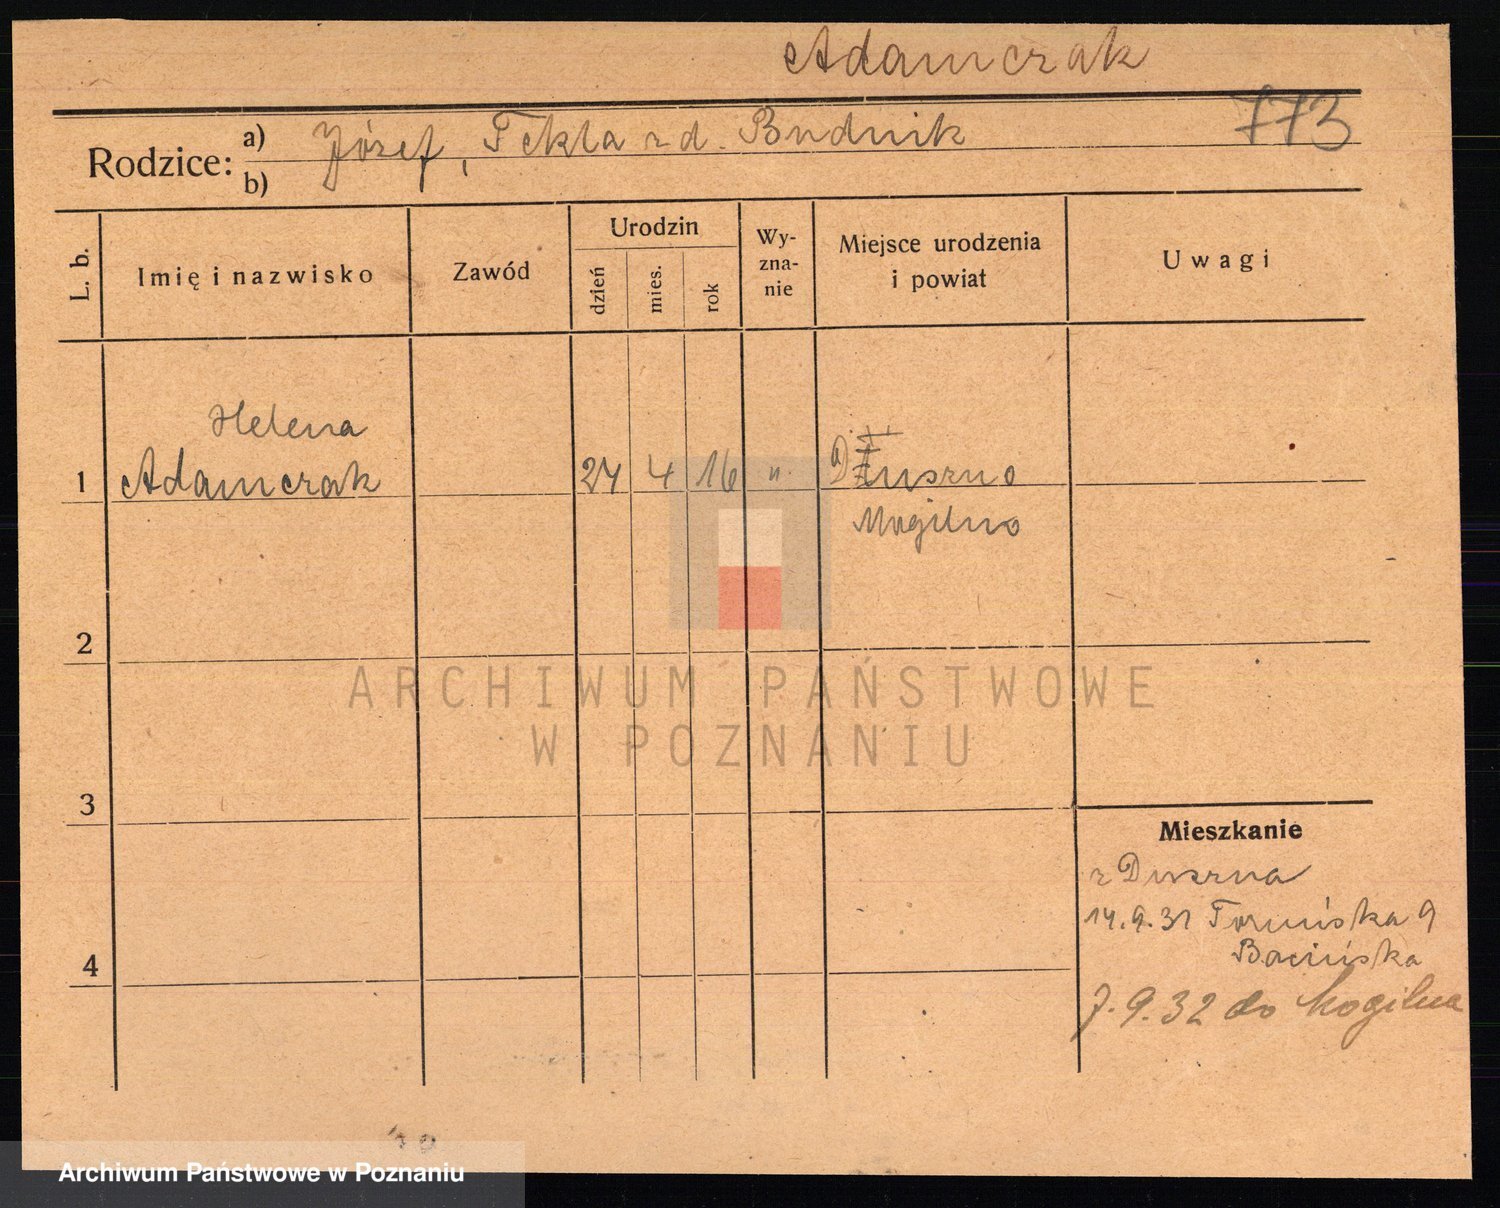 Adamczak
773
Rodzice: a) Józef, Tekla zd. Budnik
b)
L. b.
Imię i nazwisko
Zawód
Urodzin
dzień
mies.
rok
Wy-
zna-
nie
Miejsce urodzenia
i powiat
Uwagi
Helena
1 Adamczak 24 4 16 Duszno
Mogilno
2
3
4
Mieszkanie
z Duszna
14.9.31 Toruńska 9
7.9.32 do Mogilna
ARCHIWUM PAŃSTWOWE
W POZNANIU
Archiwum Państwowe w Poznaniu